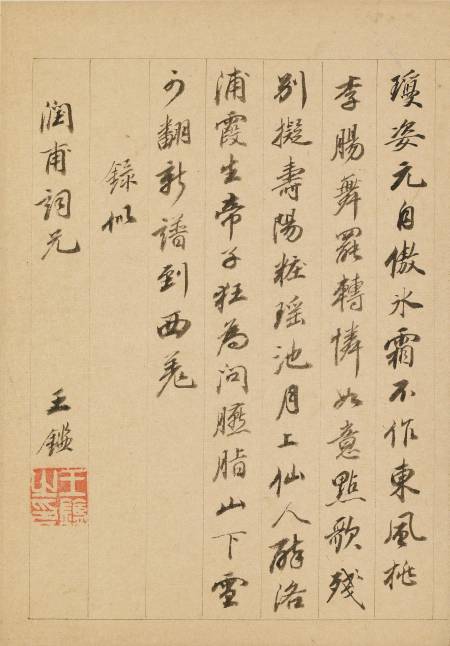 瓊姿元自傲冰霜不作東風桃
李腸舞罷轉憐如意點歌殘
別擬壽陽粧瑤池月上仙人醉洛
浦霞生帝子狂為問臙脂山下雪
可翻新譜到西羌
錄似
潤甫詞元
王鑑
王鑑之印